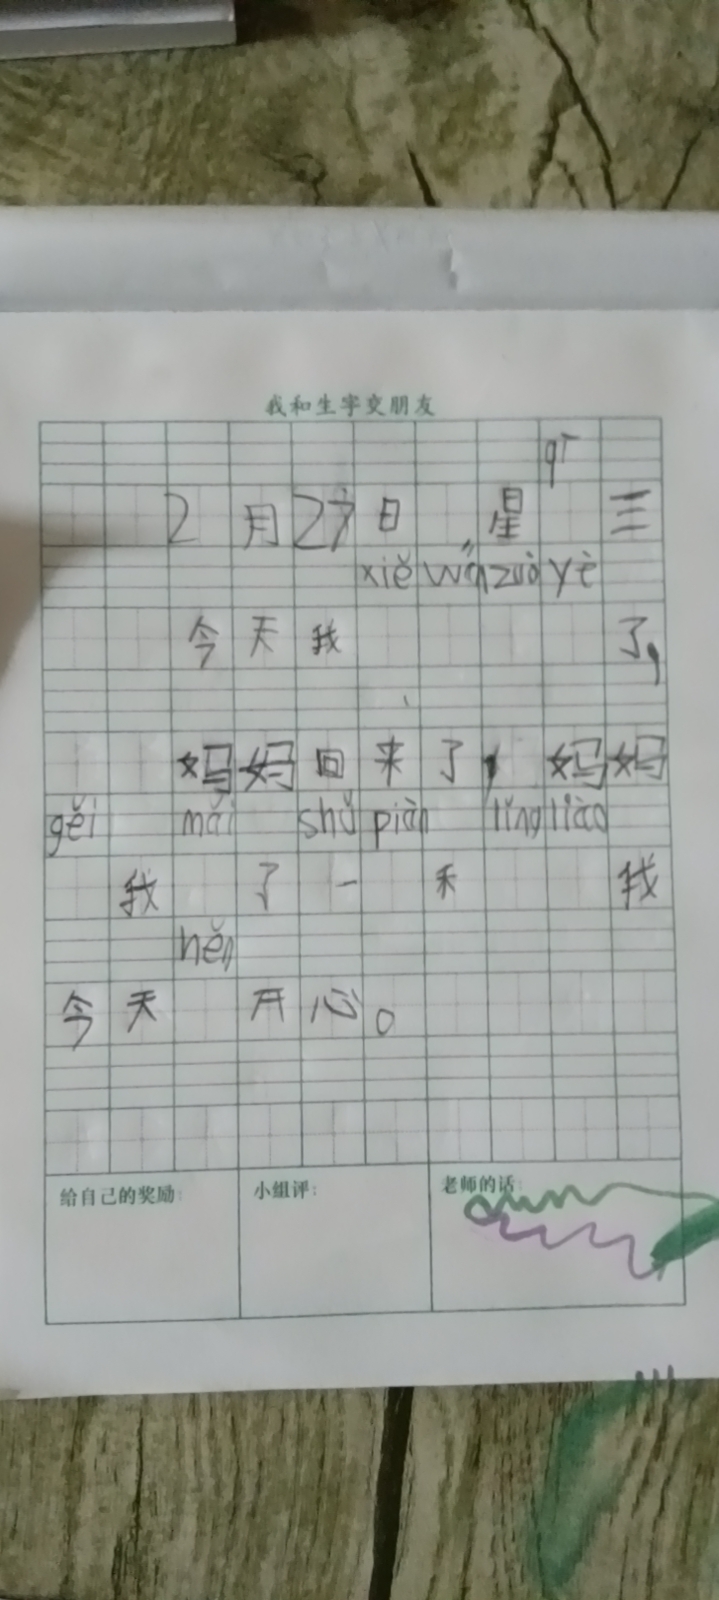 我和生字交朋友
qī
2月27日 星 三
xiě wán zuò yè
今天我 了,
妈妈回来了, 妈妈
gěi mǎi shǔ piàn
我 了 一 禾 我
hěn
今天 开心。
给自己的奖励:
小组评:
老师的话: